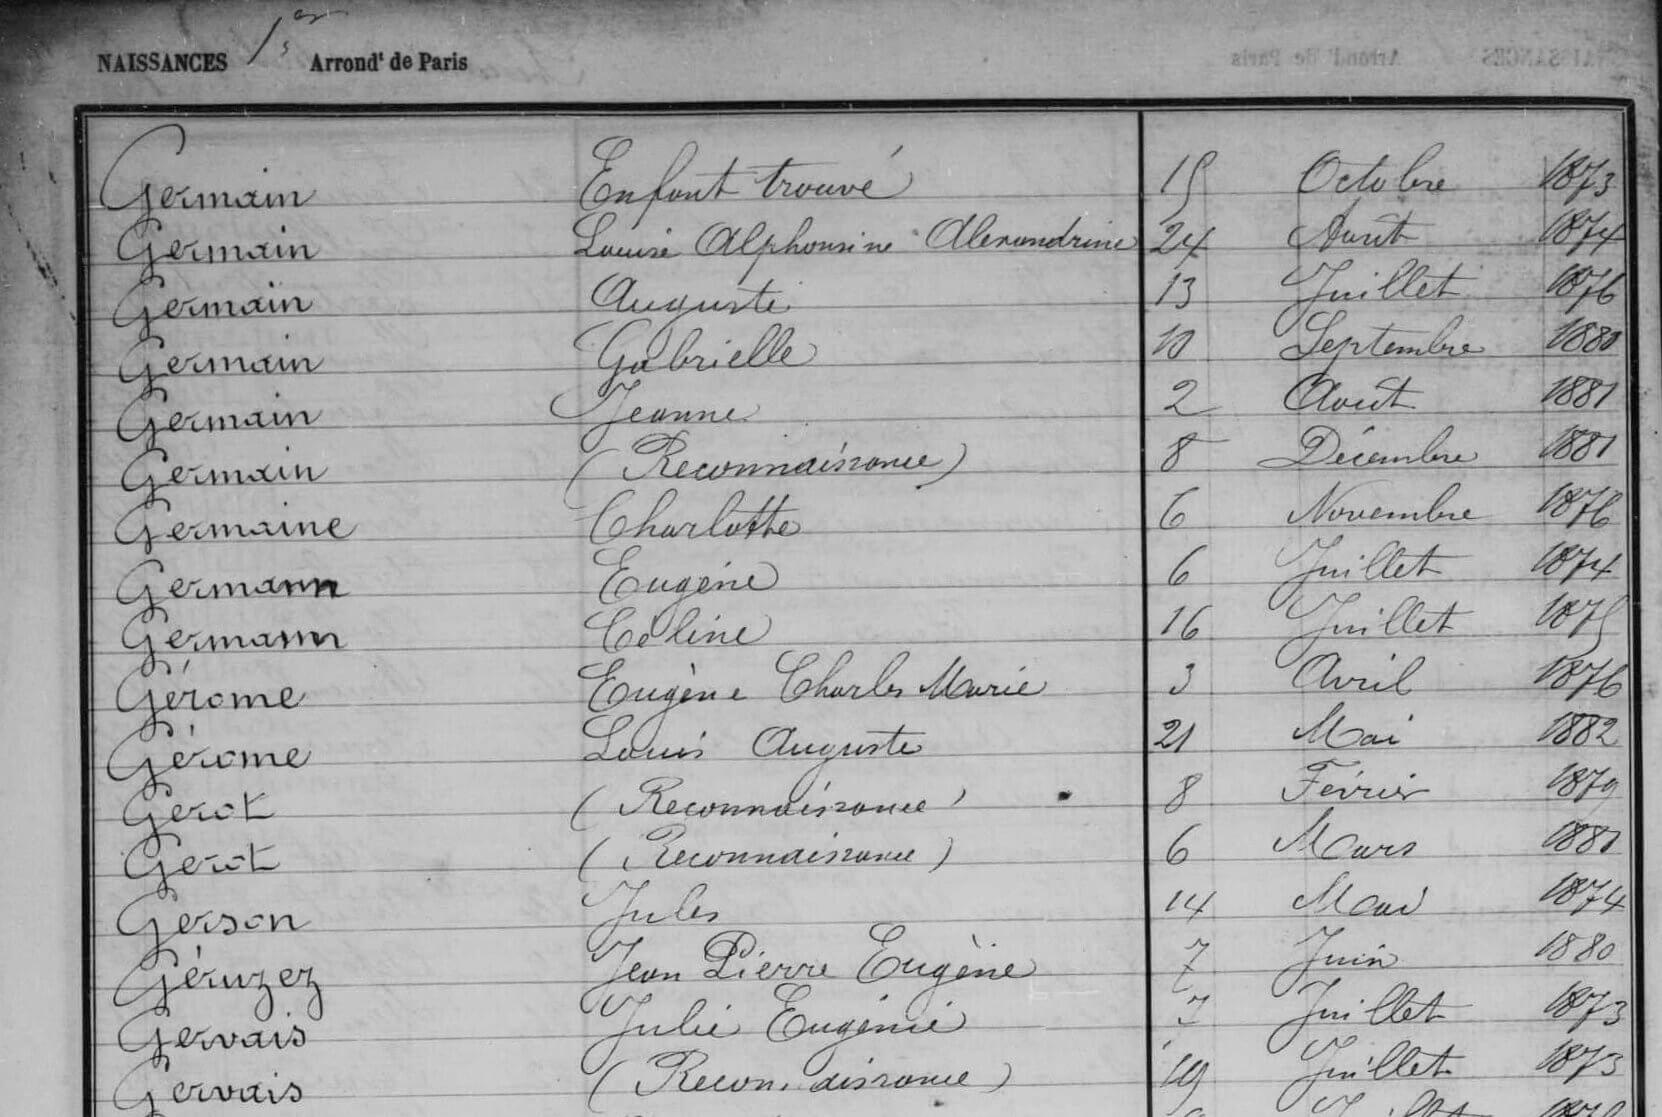 NAISSANCES 1er Arrondt de Paris
Germain Enfant trouvé 15 Octobre 1873
Germain Louise Alphonsine Alexandrine 24 Août 1874
Germain Auguste 13 Juillet 1876
Germain Gabrielle 10 Septembre 1880
Germain Jeanne 2 Août 1881
Germain (Reconnaissance) 8 Décembre 1881
Germaine Charlotte 6 Novembre 1876
Germann Eugène 6 Juillet 1874
Germann Céline 16 Juillet 1875
Gérome Eugène Charles Marie 3 Avril 1876
Gérome Louis Auguste 21 Mai 1882
Gerot (Reconnaissance) 8 Février 1879
Gerot (Reconnaissance) 6 Mars 1881
Gerson Jules 14 Mai 1874
Géruzez Jean Pierre Eugène 7 Juin 1880
Gervais Julie Eugénie 7 Juillet 1873
Gervais (Reconnaissance) 19 Juillet 1873